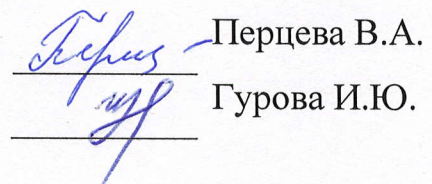 Перцева В.А.
Гурова И.Ю.